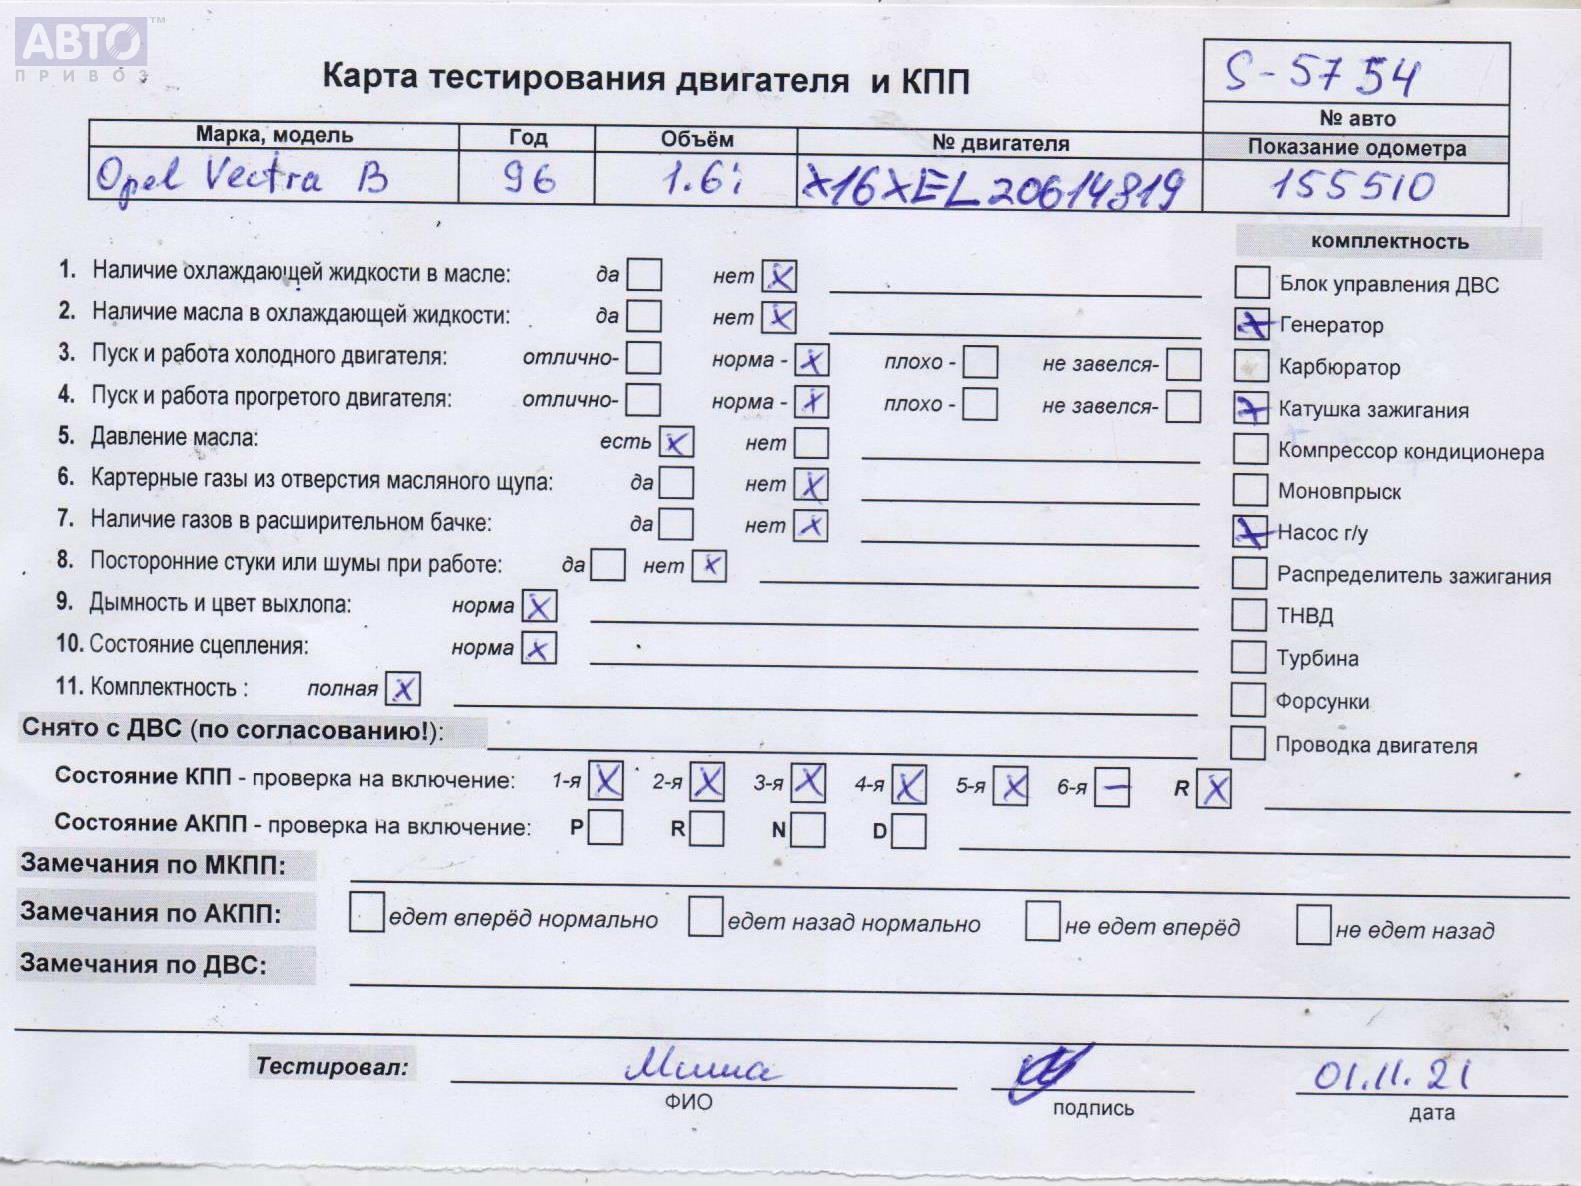 АВТО™
ПРИВОЗ
Карта тестирования двигателя и КПП
S-5754
№ авто
Марка, модель Год Объём № двигателя Показание одометра
Opel Vectra B 96 1.6i X16XEL20614819 155510
комплектность
1. Наличие охлаждающей жидкости в масле: да нет X
2. Наличие масла в охлаждающей жидкости: да нет X
3. Пуск и работа холодного двигателя: отлично- норма - X плохо - не завелся-
4. Пуск и работа прогретого двигателя: отлично- норма - X плохо - не завелся-
5. Давление масла: есть X нет
6. Картерные газы из отверстия масляного щупа: да нет X
7. Наличие газов в расширительном бачке: да нет X
8. Посторонние стуки или шумы при работе: да нет X
9. Дымность и цвет выхлопа: норма X
10. Состояние сцепления: норма X
11. Комплектность : полная X
Блок управления ДВС
X Генератор
Карбюратор
X Катушка зажигания
Компрессор кондиционера
Моновпрыск
X Насос г/у
Распределитель зажигания
ТНВД
Турбина
Форсунки
Проводка двигателя
Снято с ДВС (по согласованию!):
Состояние КПП - проверка на включение: 1-я X 2-я X 3-я X 4-я X 5-я X 6-я – R X
Состояние АКПП - проверка на включение: P R N D
Замечания по МКПП:
Замечания по АКПП: едет вперёд нормально едет назад нормально не едет вперёд не едет назад
Замечания по ДВС:
Тестировал: Миша 01.11.21
ФИО подпись дата